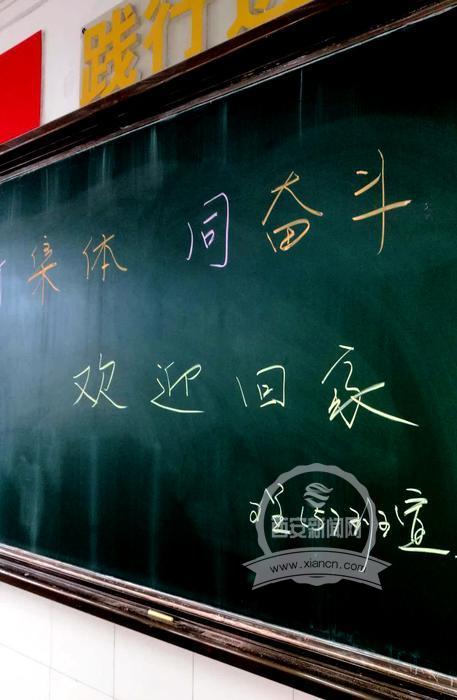 践行
集体 同奋斗
欢迎回家
西安新闻网
www.xiancn.com